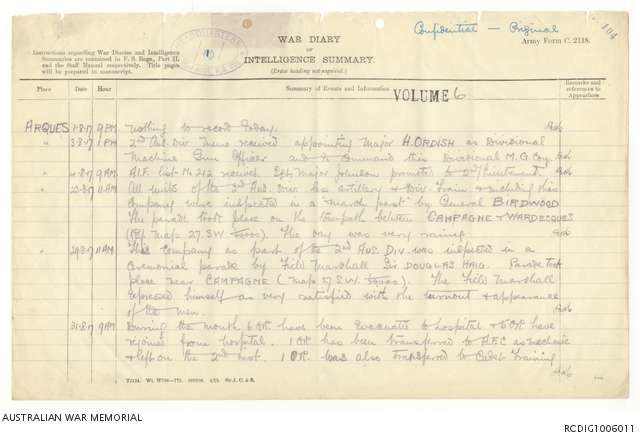 Confidential — Original
104
WAR DIARY
OR
INTELLIGENCE SUMMARY.
(Erase heading not required.)
Army Form C. 2118.
Instructions regarding War Diaries and Intelligence
Summaries are contained in F. S. Regs., Part II.
and the Staff Manual respectively. Title pages
will be prepared in manuscript.
Place Date Hour Summary of Events and Information VOLUME 6 Remarks and references to Appendices
ARQUES 1-8-17 9PM Nothing to record today.
" 3-8-17 1PM 2nd Aus. Div. Memo received appointing Major H. ORDISH as Divisional
Machine Gun Officer and to command this Divisional M.G. Coy.
" 9AM A.I.F. List No 212 received Major Johnson promoted to 2nd Lieutenant.
" 11AM All units of the 2nd Aus. Div. less artillery & Div. Train & including this
Company were inspected in a "march past" by General BIRDWOOD.
The parade took place on the between CAMPAGNE & WARDECQUES
(Ref Map 27.SW ). The day was very rainy.
" 29-8-17 11AM This Company as part of the 2nd Aus. Div. was inspected in a
Ceremonial parade by Field Marshall Sir DOUGLAS HAIG. Parade took
place near CAMPAGNE (Map 27 S.W. ). The Field Marshall
expressed himself as very satisfied with the turnout & appearance
of the men.
31-8-17 9AM During the month 6 OR have been evacuated to hospital & 5 OR have
rejoined from hospital. 1 OR has been transferred to A.F.C as mechanic
& left on the 2nd inst. 1 OR was also transferred to Cadet Training
AUSTRALIAN WAR MEMORIAL
RCDIG1006011